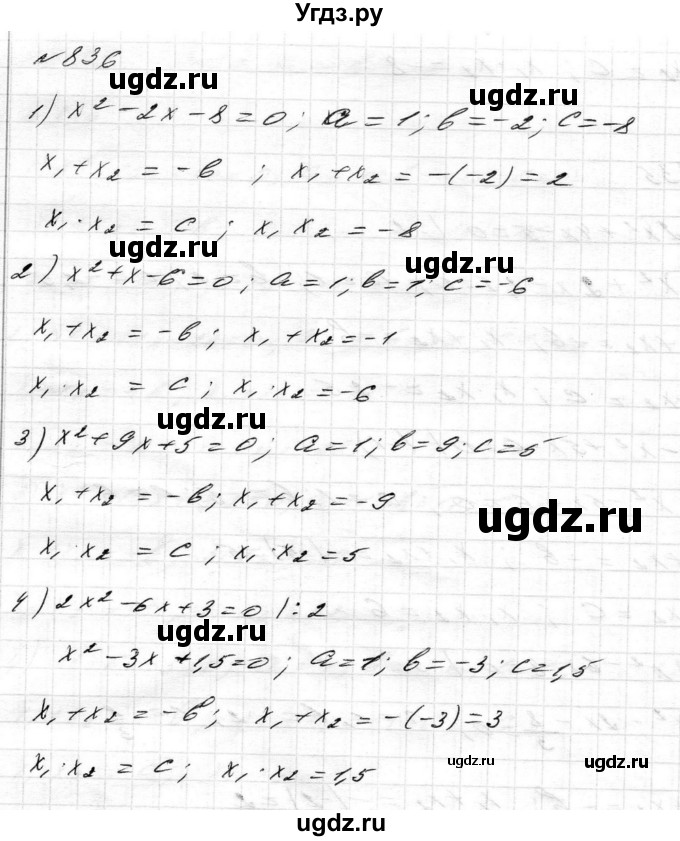 Угдз.ру
№836
ugdz.ru ugdz.ru
1) x² - 2x - 8 = 0; a = 1; b = -2; c = -8
x₁ + x₂ = -b ; x₁ + x₂ = -(-2) = 2
x₁ · x₂ = c ; x₁ x₂ = -8
ugdz.ru ugdz.ru
2) x² + x - 6 = 0; a = 1; b = 1; c = -6
x₁ + x₂ = -b; x₁ + x₂ = -1
x₁ · x₂ = c; x₁ · x₂ = -6
ugdz.ru
3) x² + 9x + 5 = 0; a = 1; b = 9; c = 5
x₁ + x₂ = -b; x₁ + x₂ = -9
ugdz.ru
x₁ · x₂ = c; x₁ · x₂ = 5
4) 2x² - 6x + 3 = 0 |: 2
ugdz.ru
x² - 3x + 1,5 = 0; a = 1; b = -3; c = 1,5
x₁ + x₂ = -b; x₁ + x₂ = -(-3) = 3
x₁ · x₂ = c; x₁ · x₂ = 1,5
ugdz.ru ugdz.ru
ugdz.ru